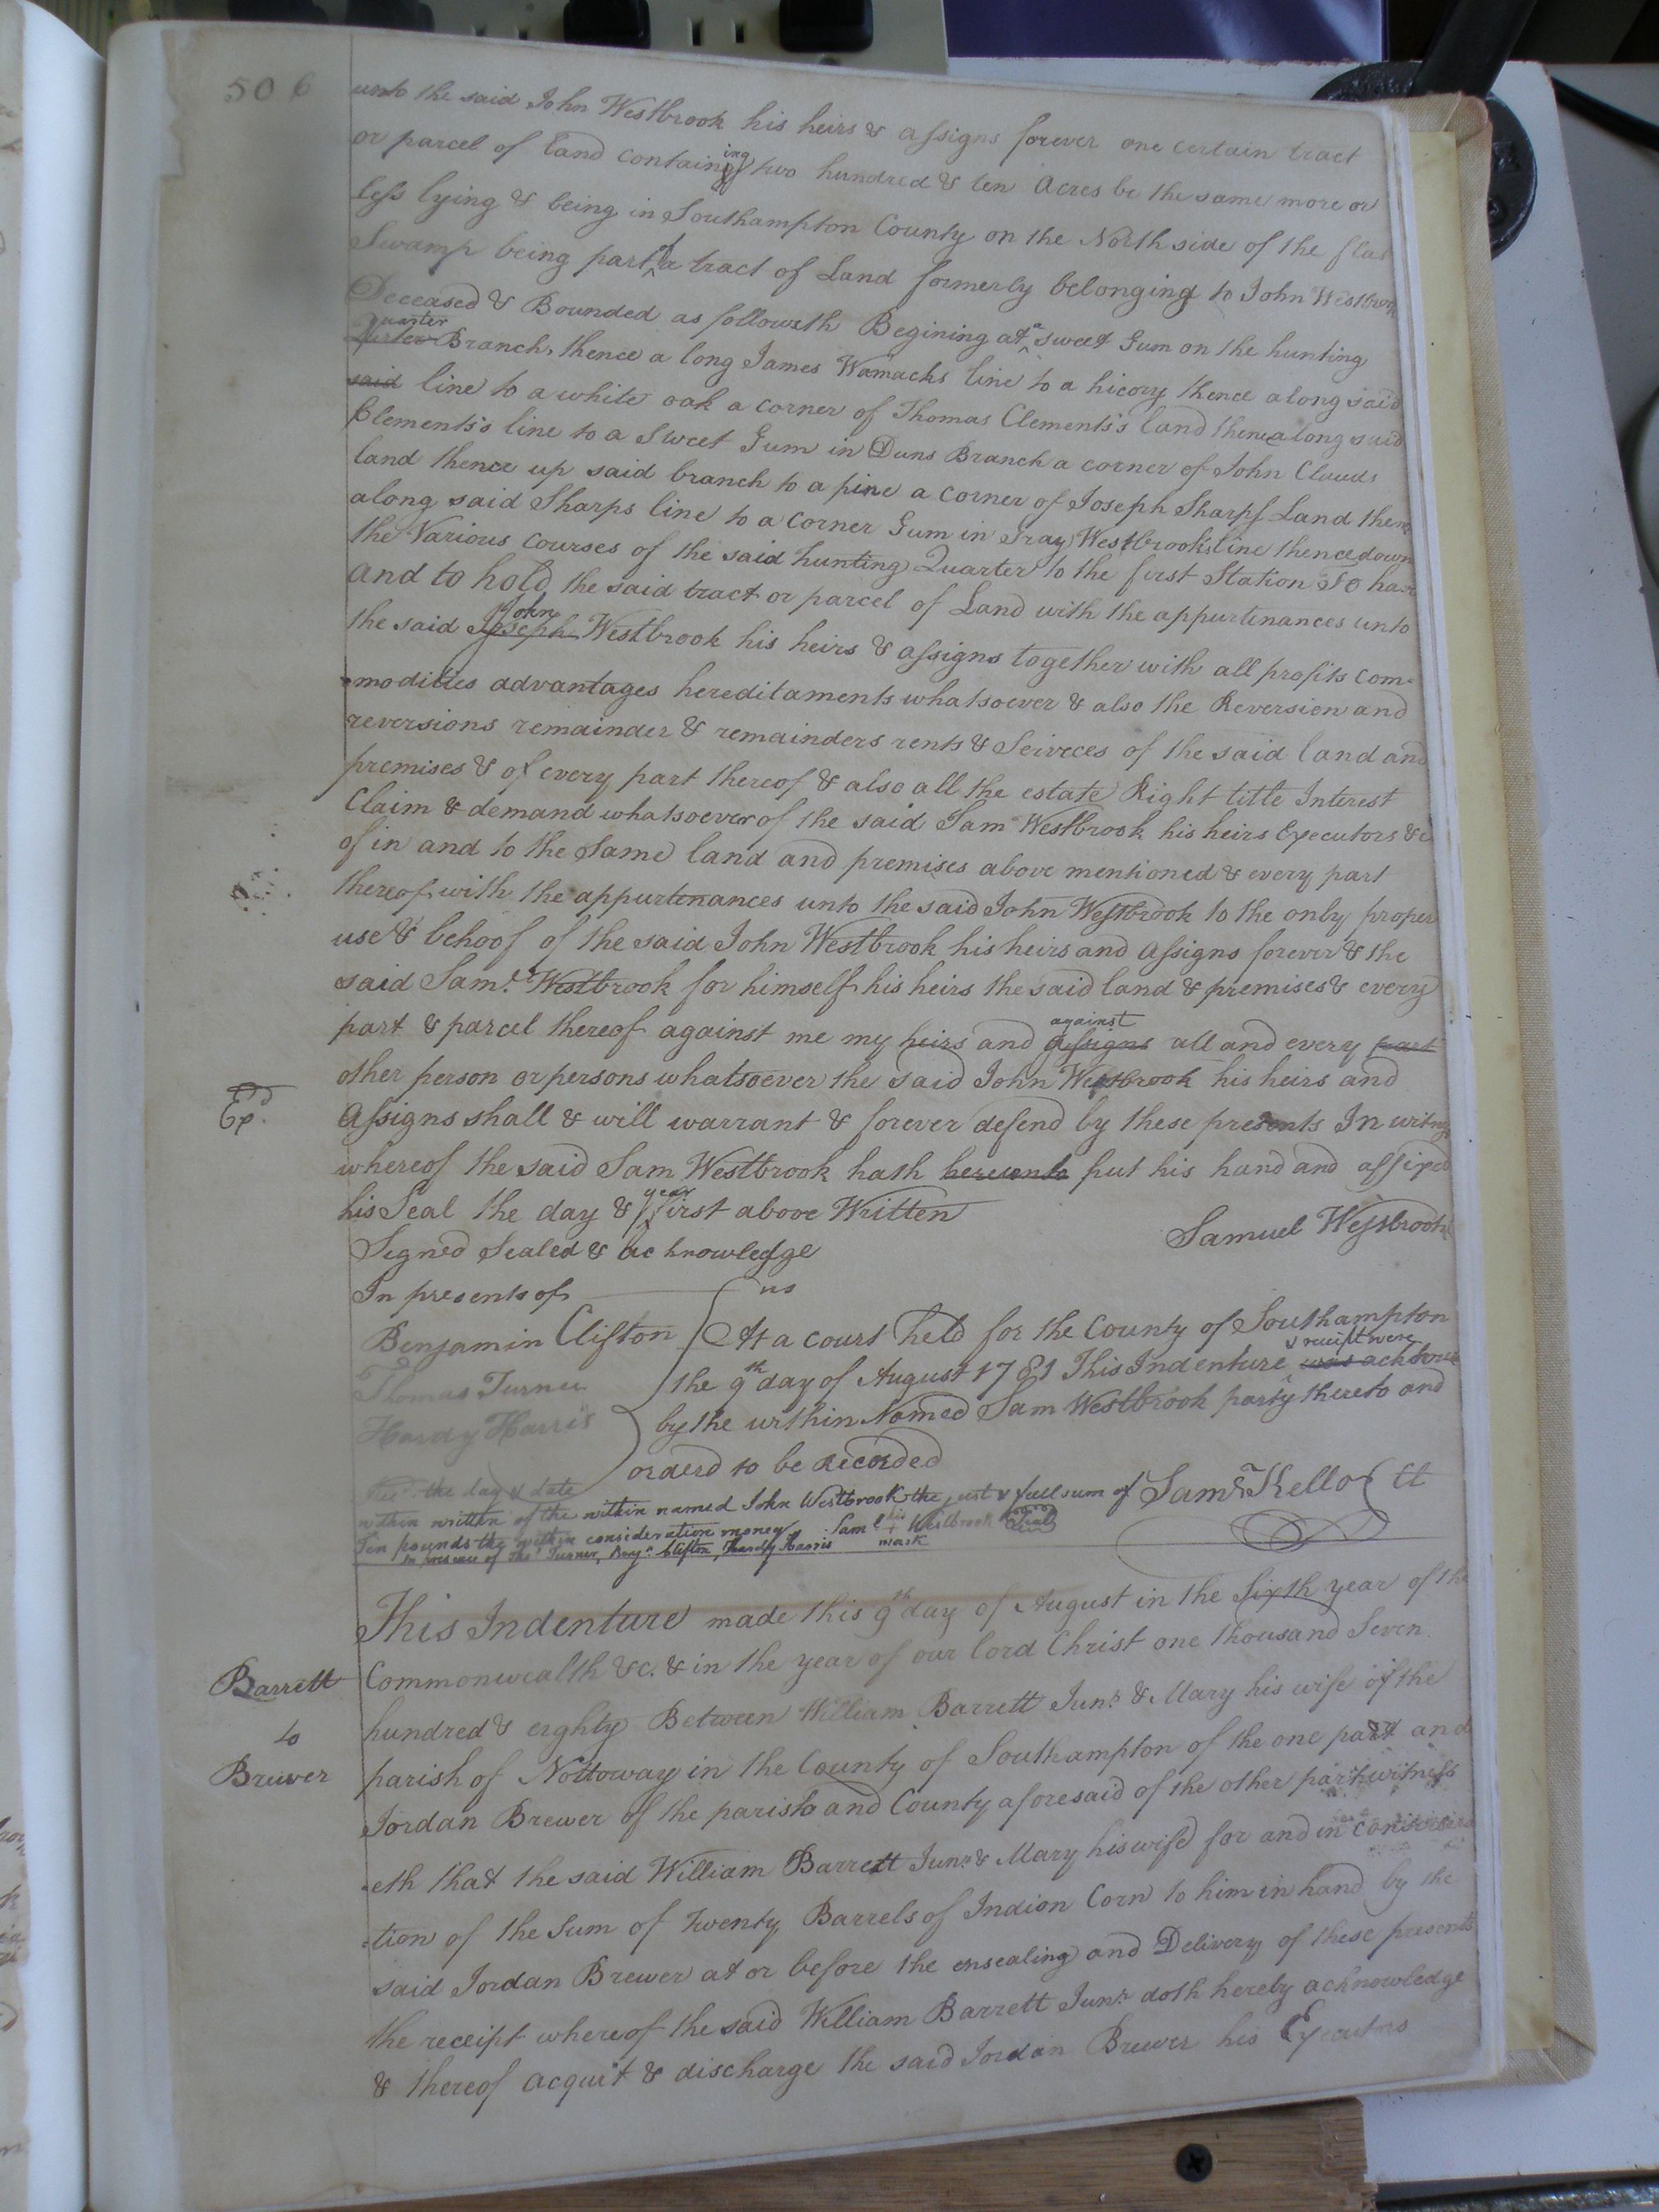 506
unto the said John Westbrook his heirs & assigns forever one certain tract
or parcel of land containing two hundred & ten Acres be the same more or
less lying & being in Southampton County on the North side of the flat
Swamp being part of a tract of Land formerly belonging to John Westbrook
Deceased & Bounded as followeth Begining at a sweet Gum on the hunting
Quarter Branch, thence a long James Wamacks line to a hicory thence along said
said line to a white oak a corner of Thomas Clements's land thence along said
Clements's line to a Sweet Gum in Duns Branch a corner of John Clauds
land thence up said branch to a pine a corner of Joseph Sharps Land thence
along said Sharps line to a corner Gum in Gray Westbrooks line thence down
the Various courses of the said hunting Quarter to the first Station To have
and to hold the said tract or parcel of Land with the appurtenances unto
the said Joseph John Westbrook his heirs & assigns together with all profits com-
modities advantages hereditaments whatsoever & also the Reversion and
reversions remainder & remainders rents & Seirveces of the said land and
premises & of every part thereof & also all the estate Right title Interest
Claim & demand whatsoever of the said Sam Westbrook his heirs Executors &c
of in and to the Same land and premises above mentioned & every part
thereof with the appurtenances unto the said John Westbrook to the only proper
use & behoof of the said John Westbrook his heirs and assigns forever & the
said Saml. Westbrook for himself his heirs the said land & premises & every
part & parcel thereof against me my heirs and assigns against all and every part
other person or persons whatsoever the said John Westbrook his heirs and
Exd.
Assigns shall & will warrant & forever defend by these presents In witness
whereof the said Sam Westbrook hath hereunto put his hand and affixed
his Seal the day & year first above Written
Samuel Westbrook
Signed Sealed & acknowledge
In presents of us
Benjamin Clifton
Thomas Turner
Hardy Harris
At a court held for the County of Southampton
the 9th day of August 1781 This Indenture & receipt were was acknow
by the within Named Sam Westbrook party thereto and
orderd to be Recorded
Saml. Kello Cl
the day & date
within written of the within named John Westbrook the just & full sum of
Ten pounds the within consideration money Saml his + mark Westbrook Seal
In presence of Thos. Turner, Benja. Clifton, Hardy Harris
Barrett
to
Brewer
This Indenture made this 9th day of August in the Sixth year of the
Commonwealth &c. & in the year of our lord Christ one thousand Seven
hundred & eighty Between William Barrett Junr. & Mary his wife of the
parish of Nottoway in the County of Southampton of the one part and
Jordan Brewer of the parish and County aforesaid of the other part witness
eth that the said William Barrett Junr. & Mary his wife for and in considera
=tion of the Sum of Twenty Barrels of Indion Corn to him in hand by the
said Jordan Brewer at or before the ensealing and Delivery of these presents
the receipt whereof the said William Barrett Junr. doth hereby acknowledge
& thereof acquit & discharge the said Jordan Brewer his Executors